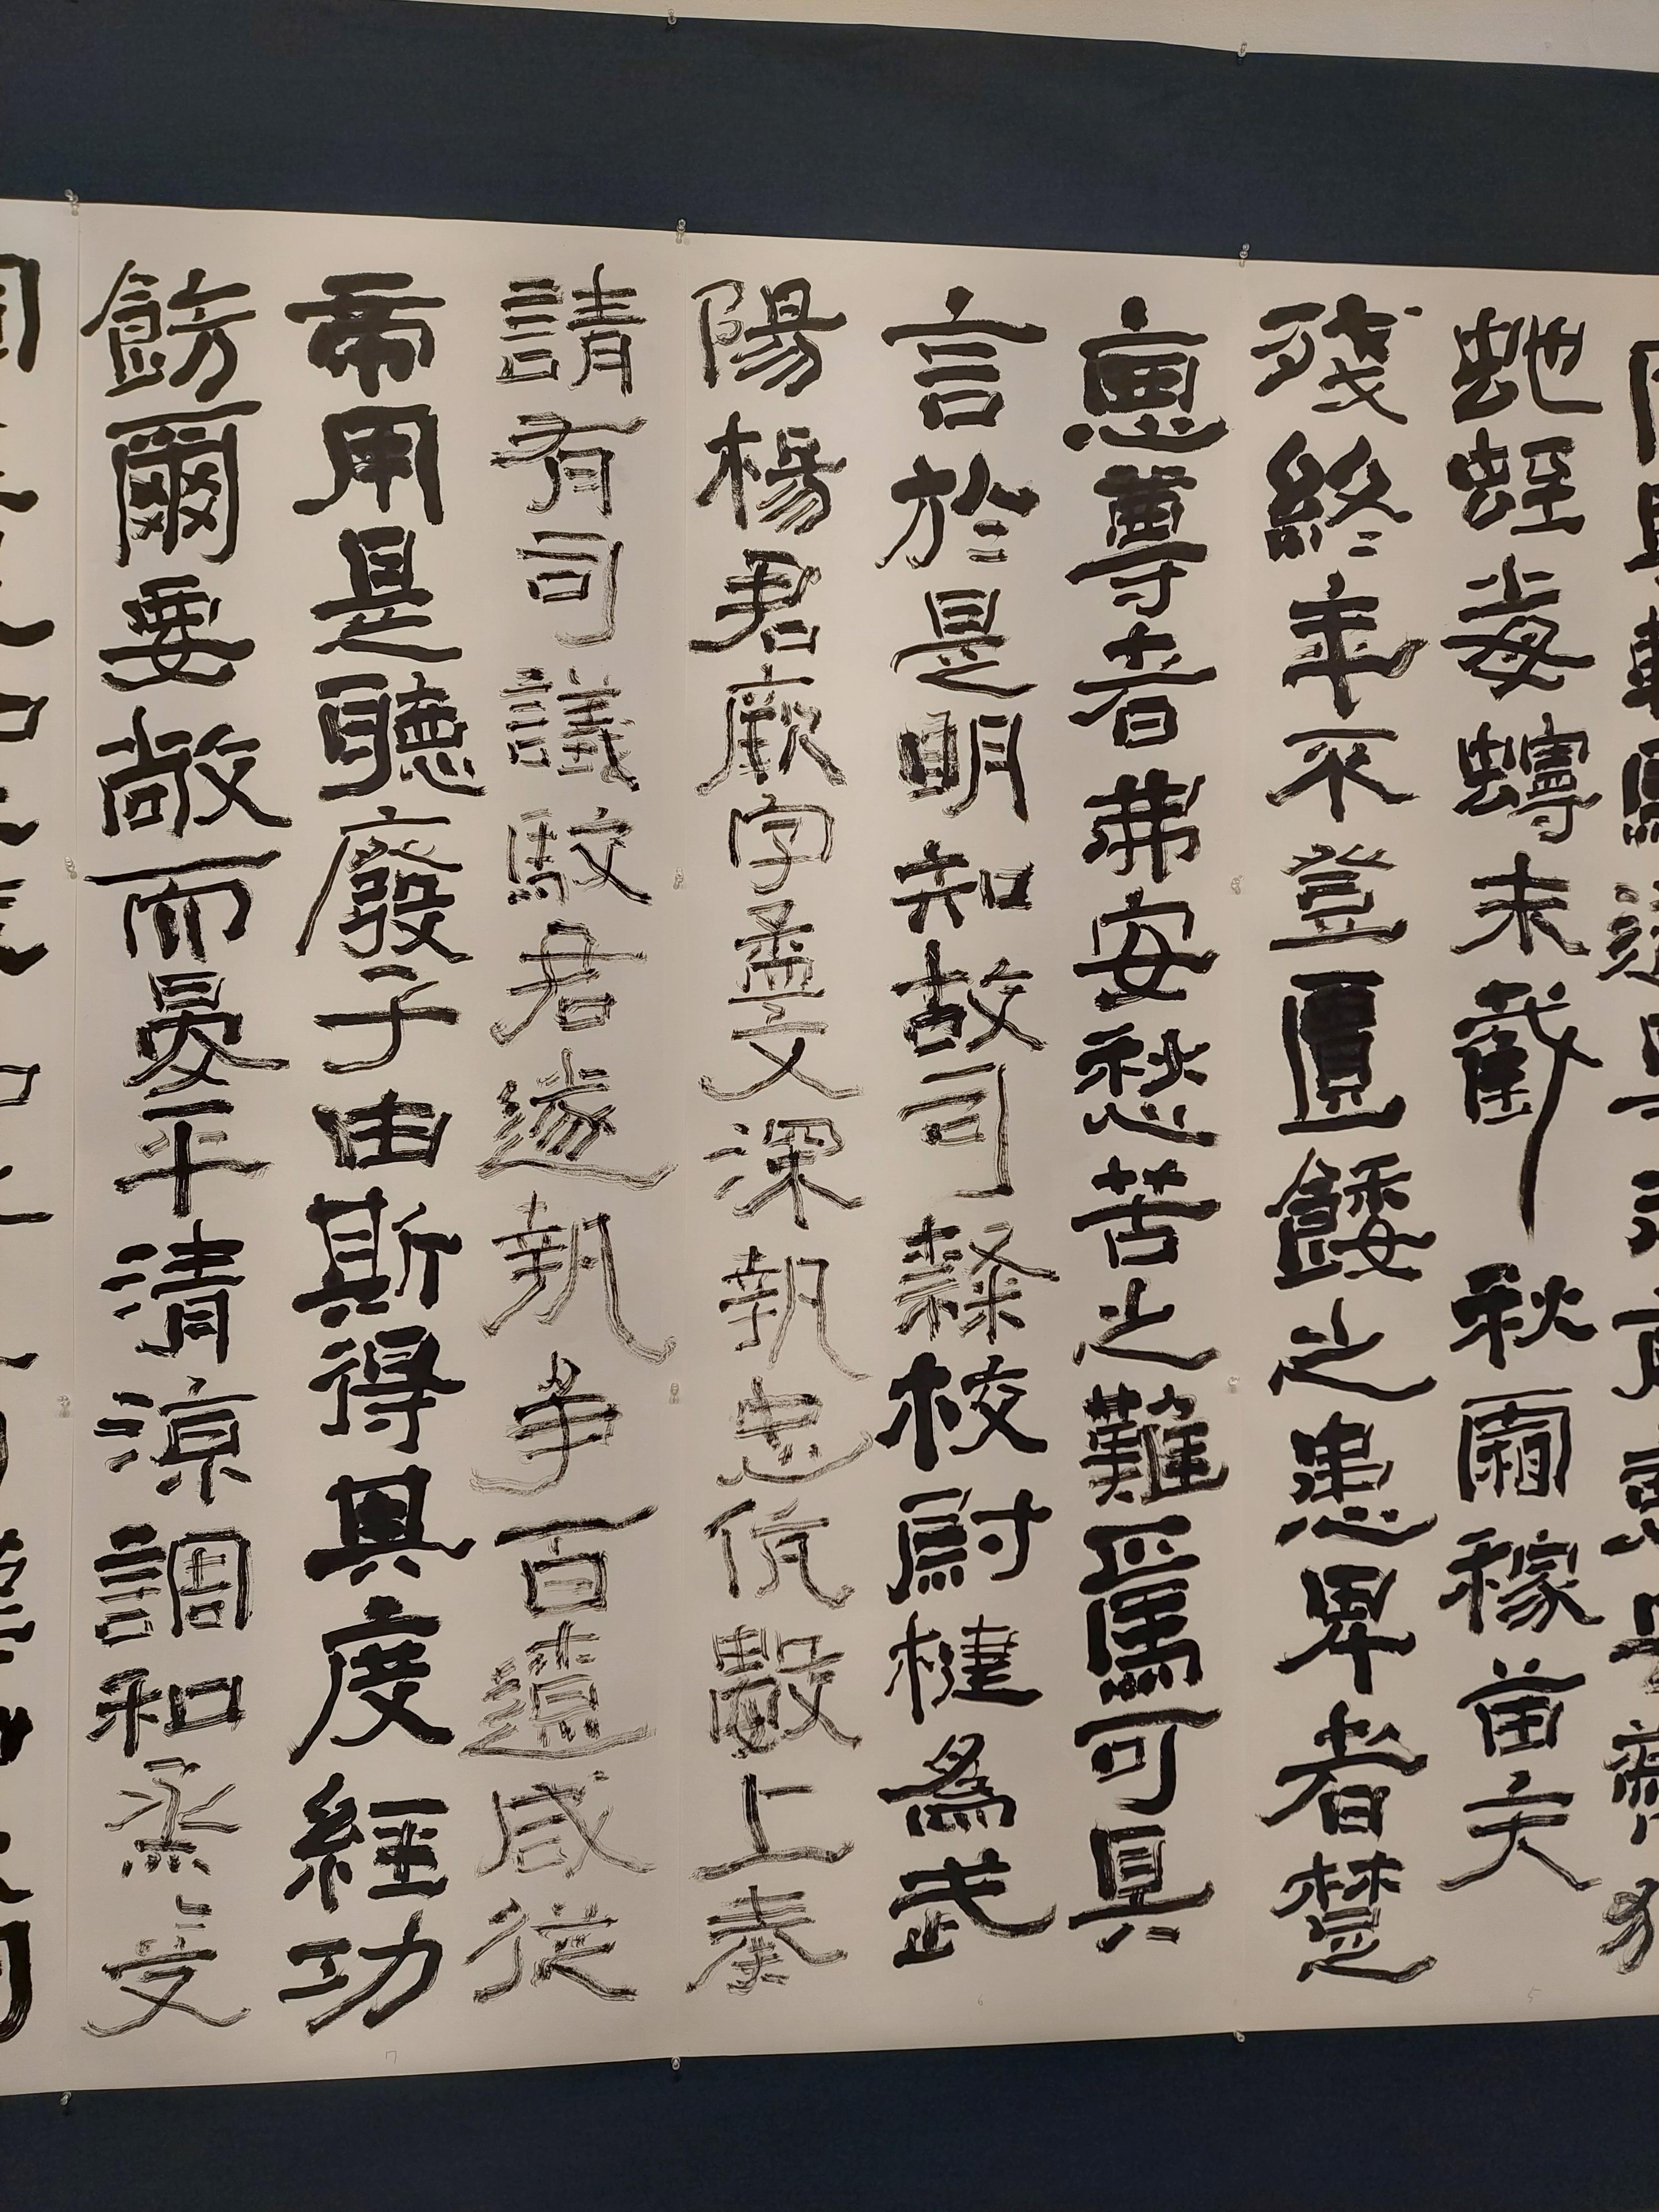 虵蛭毒蟃未截秋霜稼苗夭
殘終年不登匱餧之患卑者楚
惡尊者弗安愁苦之難焉可具
言於是明知故司隸校尉楗為武
陽楊君厥字孟文深執忠伉數上奏
請有司議駮君遂執爭百遼咸從
帝用是聽廢子由斯得其度經功
飭爾要敞而晏平清涼調和烝〻艾